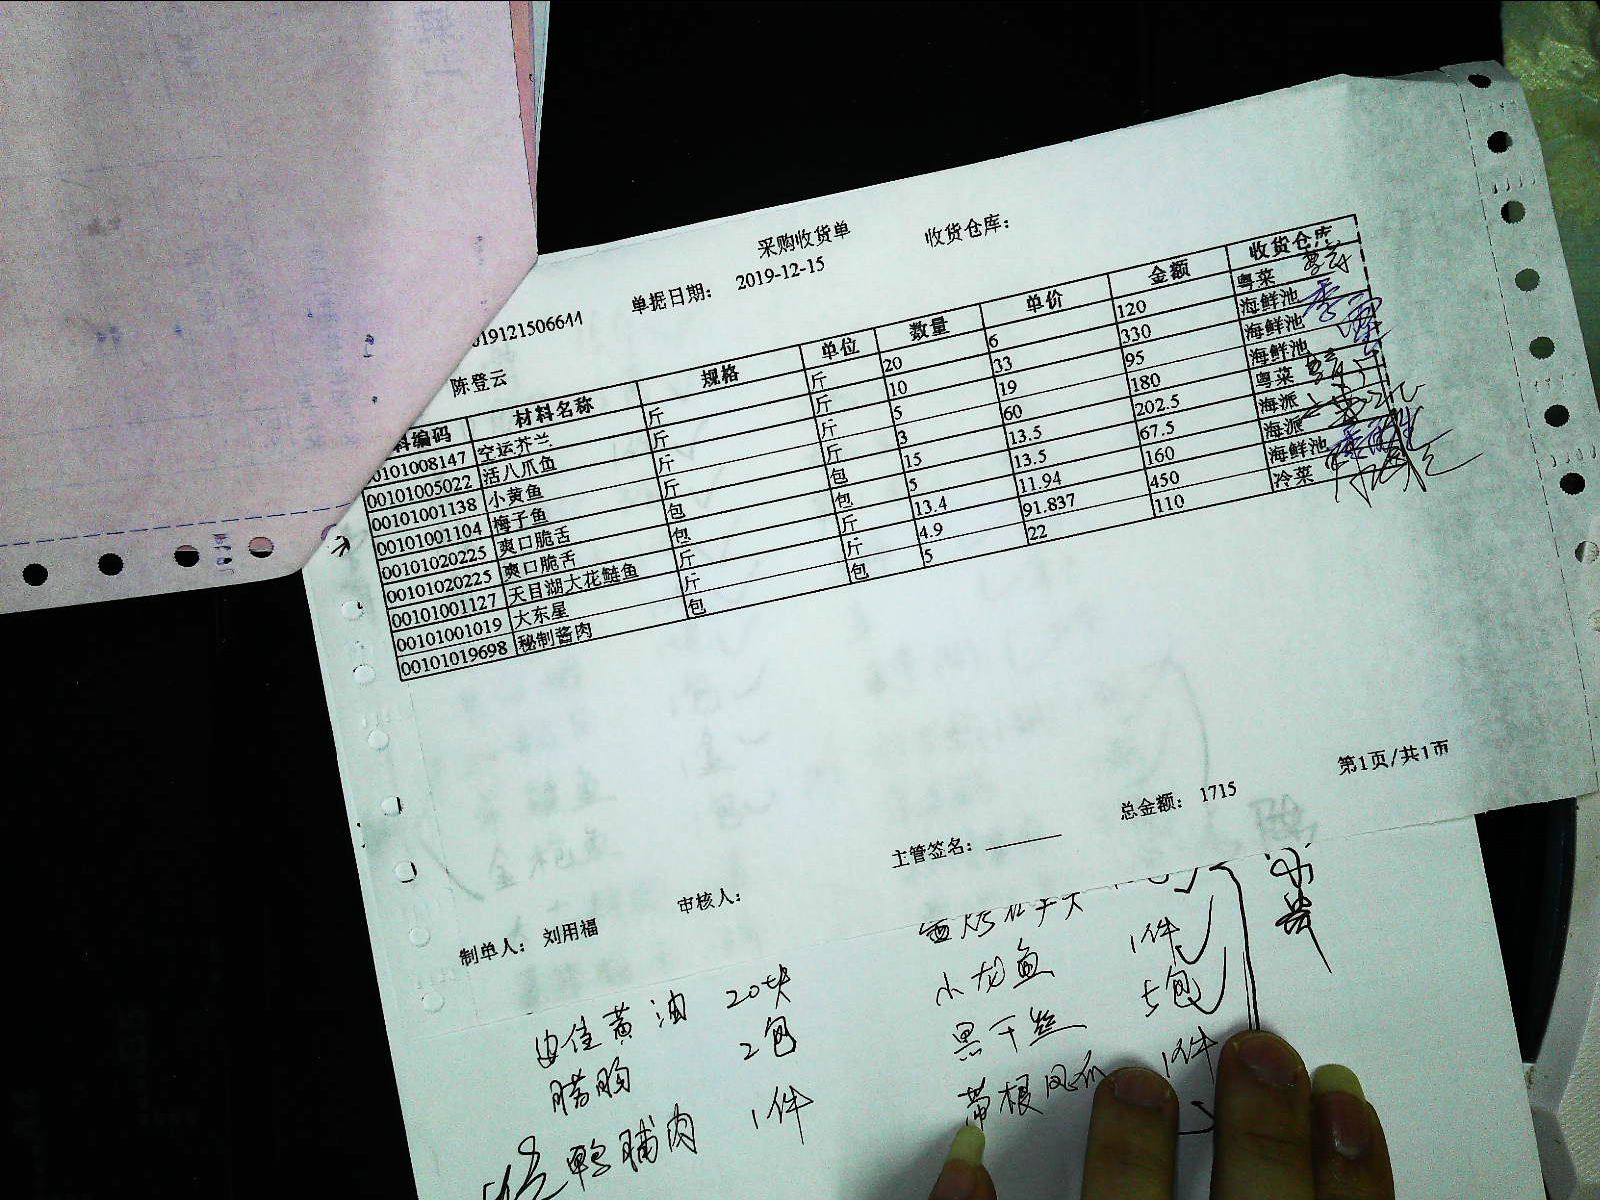 采购收货单 收货仓库：
19121506641 单据日期： 2019-12-15
陈登云
料编码 材料名称 规格 单位 数量 单价 金额 收货仓库
0101008147 空运芥兰 斤 斤 20 6 120 粤菜
00101005022 活八爪鱼 斤 斤 10 33 330 海鲜池
00101001138 小黄鱼 斤 斤 5 19 95 海鲜池
00101001104 梅子鱼 斤 斤 3 60 180 海鲜池
00101020225 爽口脆舌 包 包 15 13.5 202.5 粤菜
00101020225 爽口脆舌 包 包 5 13.5 67.5 海派
00101001127 天目湖大花鲢鱼 斤 斤 13.4 11.94 160 海派
00101001019 大东星 斤 斤 4.9 91.837 450 海鲜池
00101019698 秘制酱肉 包 包 5 22 110 冷菜
第1页/共1页
主管签名： 总金额： 1715
制单人： 刘用福 审核人：
黄油 20块
2包
鸭脯肉 1件
小龙鱼 1件
黑干丝 5包
带根凤爪 1件